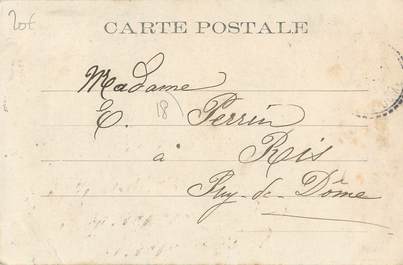 20€
CARTE POSTALE
Madame
E. Perrin
18
a Ris
Puy-de-Dôme